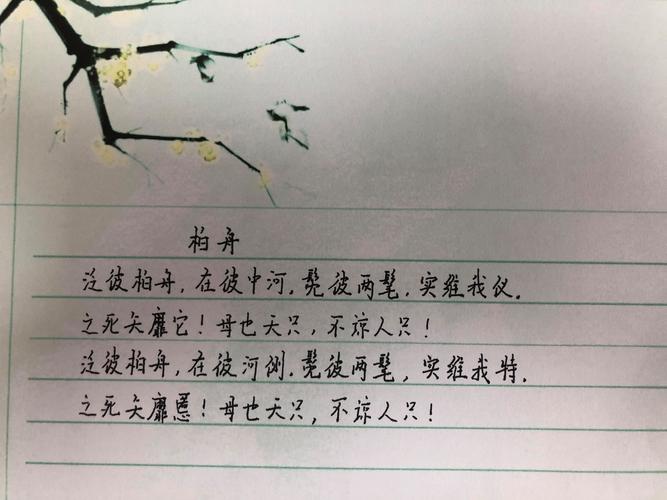 柏舟
泛彼柏舟,在彼中河.髧彼两髦,实维我仪.
之死矢靡它!母也天只,不谅人只!
泛彼柏舟,在彼河侧.髧彼两髦,实维我特.
之死矢靡慝!母也天只,不谅人只!